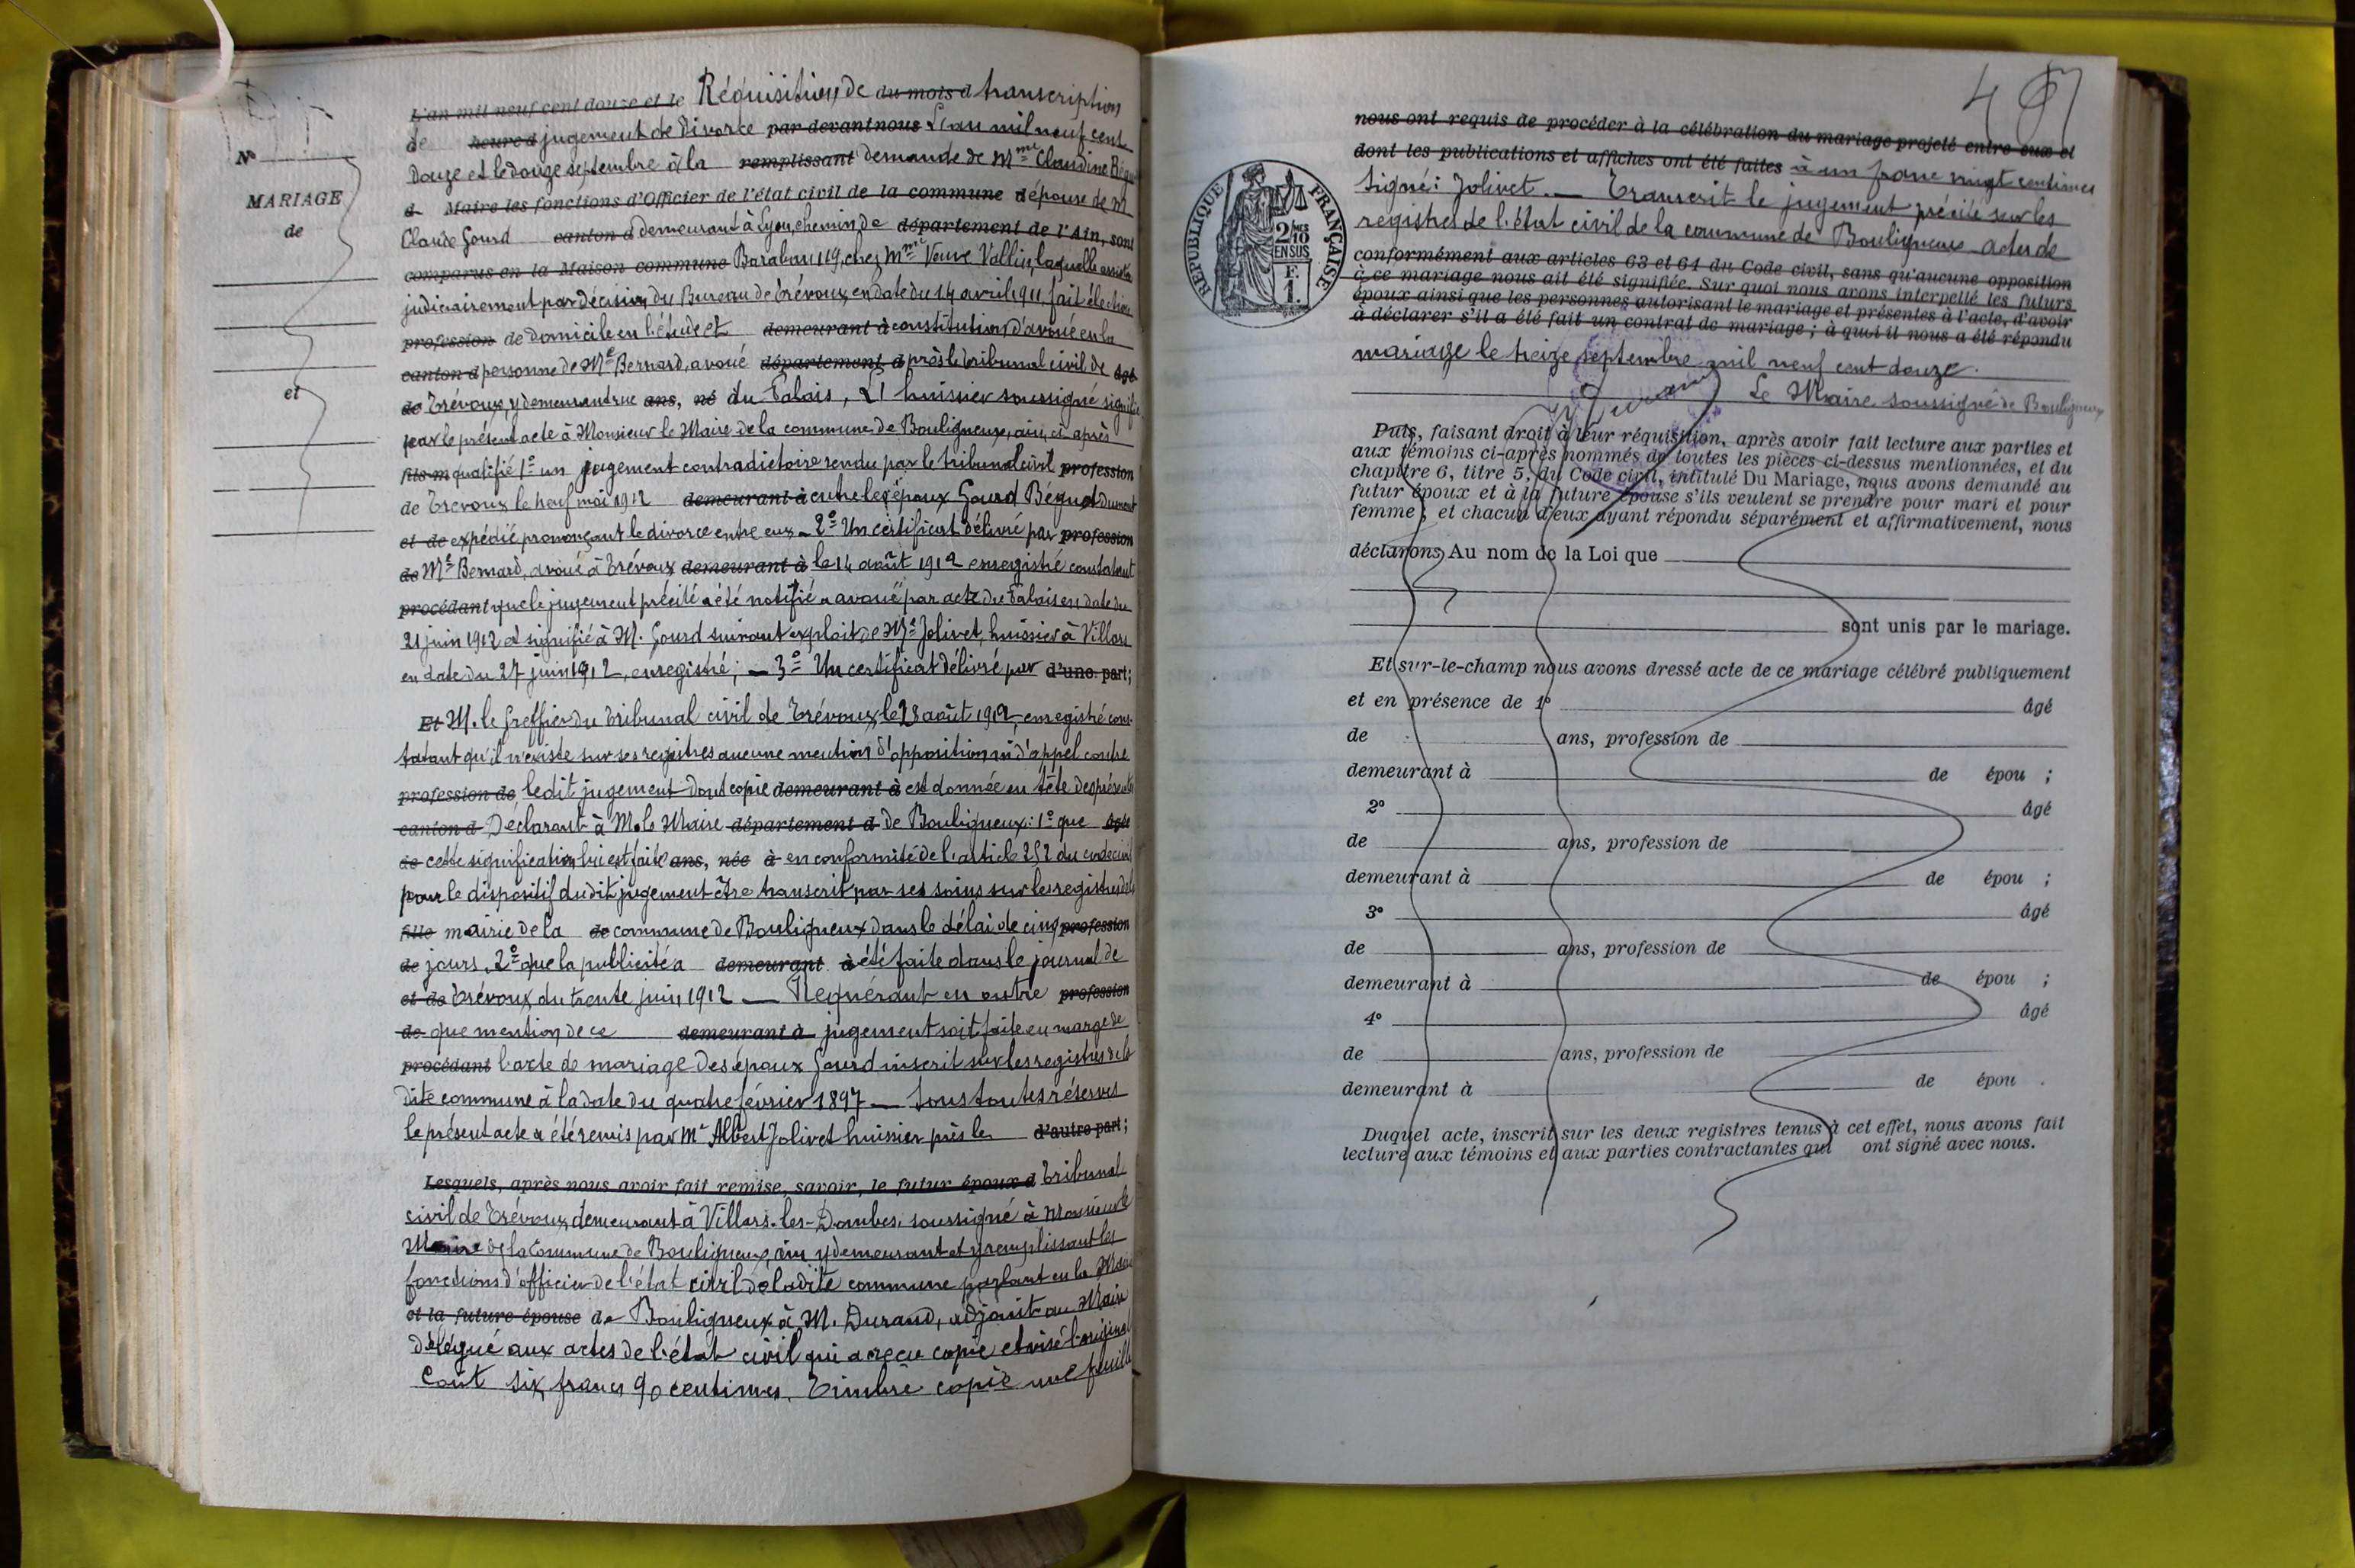 L'an mil neuf cent douze et le Réquisition de du mois d transcription
de heure d jugement de divorce par devant nous L'an mil neuf cent
douze et le douze septembre à la remplissant demande de Mme Claudine Béguet
d Maire les fonctions d'Officier de l'état civil de la commune d épouse de M
Claude Gourd canton d demeurant à Lyon, chemin de département de l'Ain, sont
comparus en la Maison commune Baraban 119, chez Mme Veuve Vallin, laquelle assistée
judiciairement par décision du Bureau de Trévoux en date du 14 avril 1911, fait élection
profession de domicile en l'étude et demeurant à constitution d'avoué en la
canton d personne de Me Bernard, avoué département d près le tribunal civil de âgé
de Trévoux y demeurant rue ans, né du Palais, L' huissier soussigné signifie
par le présent acte à Monsieur le Maire de la commune de Bouligneux, ain, ci-après
fils m qualifié 1° un jugement contradictoire rendu par le tribunal civil profession
de Trévoux le neuf mai 1912 demeurant à entre les époux Gourd Béguet dument
et de expédié prononçant le divorce entre eux – 2° Un certificat délivré par profession
de Me Bernard, avoué à Trévoux demeurant à le 14 août 1912 enregistré constatant
procédant que le jugement précité a été notifié a avoué par acte du Palais en date du
21 juin 1912 et signifié à M. Gourd suivant exploit de Me Jolivet, huissier à Villars
en date du 27 juin 1912, enregistré; – 3° Un certificat délivré par d'une part;
Et M. le Greffier du Tribunal civil de Trévoux, le 28 août 1912, enregistré cons-
tatant qu'il n'existe sur ses registres aucune mention d'opposition ni d'appel contre
profession de ledit jugement dont copie demeurant à est donnée en tête des présentes
canton d Déclarant à M. le Maire département d de Bouligneux: 1° que âgée
de cette signification lui est faite ans, née à en conformité de l'article 252 du code civil
pour le dispositif dudit jugement être transcrit par ses soins sur les registres de la
fille mairie de la de commune de Bouligneux dans le délai de cinq profession
de jours, 2° que la publicité a demeurant à été faite dans le journal de
et de Trévoux, du trente juin 1912 — Requérant en outre profession
de que mention de ce demeurant à jugement soit faite en marge de
procédant l'acte de mariage des époux Gourd inscrit sur les registres de la
dite commune à la date du quatre février 1897 — Sous toutes réserves
le présent acte a été remis par Me Albert Jolivet huissier près le d'autre part;
Lesquels, après nous avoir fait remise, savoir, le futur époux d Tribunal
civil de Trévoux, demeurant à Villars-les-Dombes, soussigné à Monsieur le
Maire de la Commune de Bouligneux, ain y demeurant et y remplissant les
fonctions d'officier de l'état civil de ladite commune parlant en la Mairie
et la future épouse de Bouligneux à M. Durand, adjoint au Maire
délégué aux actes de l'état civil qui a reçu copie et visé l'original
Coût six francs 90 centimes. Timbre copie une feuille
N°
MARIAGE
de
et
nous ont requis de procéder à la célébration du mariage projeté entre eux et
dont les publications et affiches ont été faites à un franc vingt centimes
signé: Jolivet. — Transcrit le jugement précité sur les
registres de l'état civil de la commune de Bouligneux actes de
conformément aux articles 63 et 64 du Code civil, sans qu'aucune opposition
à ce mariage nous ait été signifiée. Sur quoi nous avons interpellé les futurs
époux ainsi que les personnes autorisant le mariage et présentes à l'acte, d'avoir
à déclarer s'il a été fait un contrat de mariage; à quoi il nous a été répondu
mariage le treize septembre mil neuf cent douze.
Le Maire soussigné de Bouligneux
RÉPUBLIQUE FRANÇAISE
2/10
EN SUS
F.
1.
Puis, faisant droit à leur réquisition, après avoir fait lecture aux parties et
aux témoins ci-après nommés de toutes les pièces ci-dessus mentionnées, et du
chapitre 6, titre 5, du Code civil, intitulé Du Mariage, nous avons demandé au
futur époux et à la future épouse s'ils veulent se prendre pour mari et pour
femme; et chacun d'eux ayant répondu séparément et affirmativement, nous
déclarons Au nom de la Loi que
sont unis par le mariage.
Et sur-le-champ nous avons dressé acte de ce mariage célébré publiquement
et en présence de 1° âgé
de ans, profession de
demeurant à de épou ;
2° âgé
de ans, profession de
demeurant à de épou ;
3° âgé
de ans, profession de
demeurant à de épou ;
4° âgé
de ans, profession de
demeurant à de épou .
Duquel acte, inscrit sur les deux registres tenus à cet effet, nous avons fait
lecture aux témoins et aux parties contractantes qui ont signé avec nous.